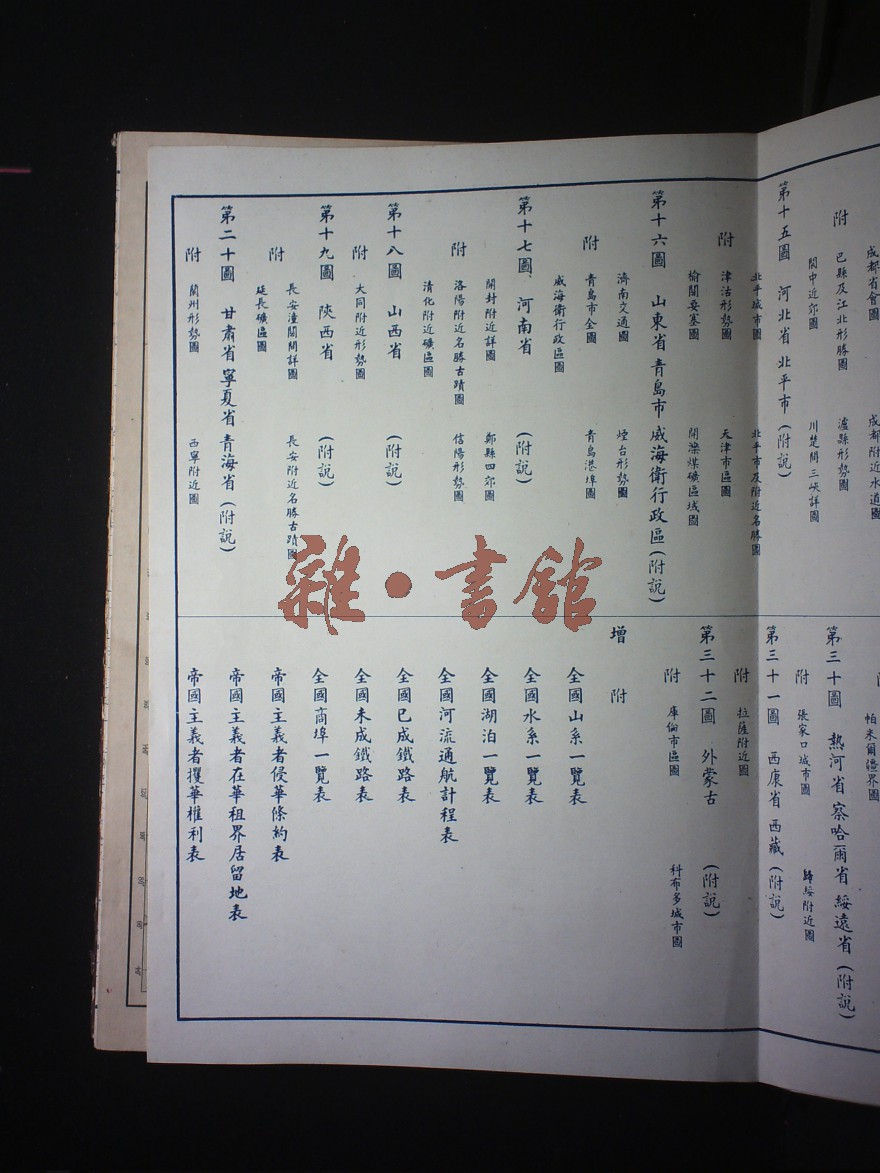 成都省會圖
成都附近水道
附 巴縣及江北形勝圖 瀘縣形勢圖
閬中近郊圖 川楚間三峽詳圖
第十五圖 河北省 北平市 (附說)
北平城市圖 北平市及附近名勝圖
附 津沽形勢圖 天津市區圖
榆關要塞圖 開灤煤礦區域圖
第十六圖 山東省 青島市 威海衛行政區 (附說)
濟南交通圖 煙台形勢圖
附 青島市全圖 青島港埠圖
威海衛行政區圖
第十七圖 河南省 (附說)
開封附近詳圖 鄭縣四郊圖
附 洛陽附近名勝古蹟圖 信陽形勢圖
清化附近礦區圖
第十八圖 山西省 (附說)
附 大同附近形勢圖
第十九圖 陝西省 (附說)
長安潼關間詳圖 長安附近名勝古蹟圖
附 延長礦區圖
第二十圖 甘肅省 寧夏省 青海省 (附說)
附 蘭州形勢圖 西寧附近圖
帕米爾疆界圖
第三十圖 熱河省 察哈爾省 綏遠省 (附說)
附 張家口城市圖 歸綏附近圖
第三十一圖 西康省 西藏 (附說)
附 拉薩附近圖
第三十二圖 外蒙古 (附說)
附 庫倫市區圖 科布多城市圖
增附
全國山系一覽表
全國水系一覽表
全國湖泊一覽表
全國河流通航計程表
全國已成鐵路表
全國未成鐵路表
全國商埠一覽表
帝國主義者侵華條約表
帝國主義者在華租界居留地表
帝國主義者攫華權利表
雜·書館